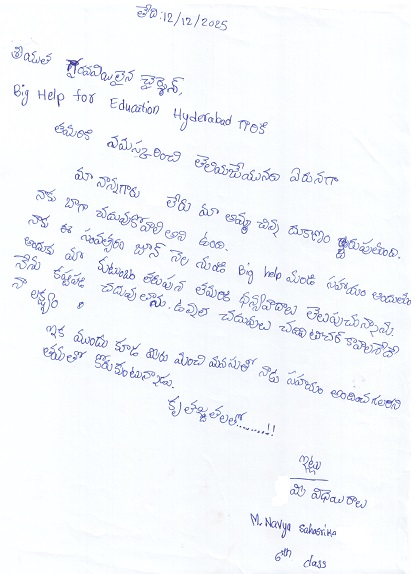 తేది:12/12/2025
శ్రీయుత గౌరవనీయులైన చైర్మెన్,
Big Help for Education Hyderabad గారికి
తమరికి నమస్కరించి తెలియచేయునది ఏమనగా
మా నాన్నగారు లేరు మా అమ్మ చిన్న దుకాణం జరుపుతుంది.
నాకు బాగా చదువుకోవాలి అని ఉంది.
నాకు ఈ సంవత్సరం జూన్ నెల నుండి Big help నుండి సహాయం అందుతోంది
అందుకు మా కుటుంబం తరుపున తమరికి ధన్యవాదాలు తెలుపుచున్నాను.
నేను కష్టపడి చదువుతాను. ఉన్నత చదువులు చదివి టీచర్ కావాలనేది
నా లక్ష్యం.
ఇక ముందు కూడ మీరు మంచి మనసుతో నాకు సహాయం అందించగలరని
ఆశతో కోరుకుంటున్నాను.
కృతజ్ఞతలతో........!!
ఇట్లు
మీ విధేయురాలు
M. Navya Sahasrika
6th class